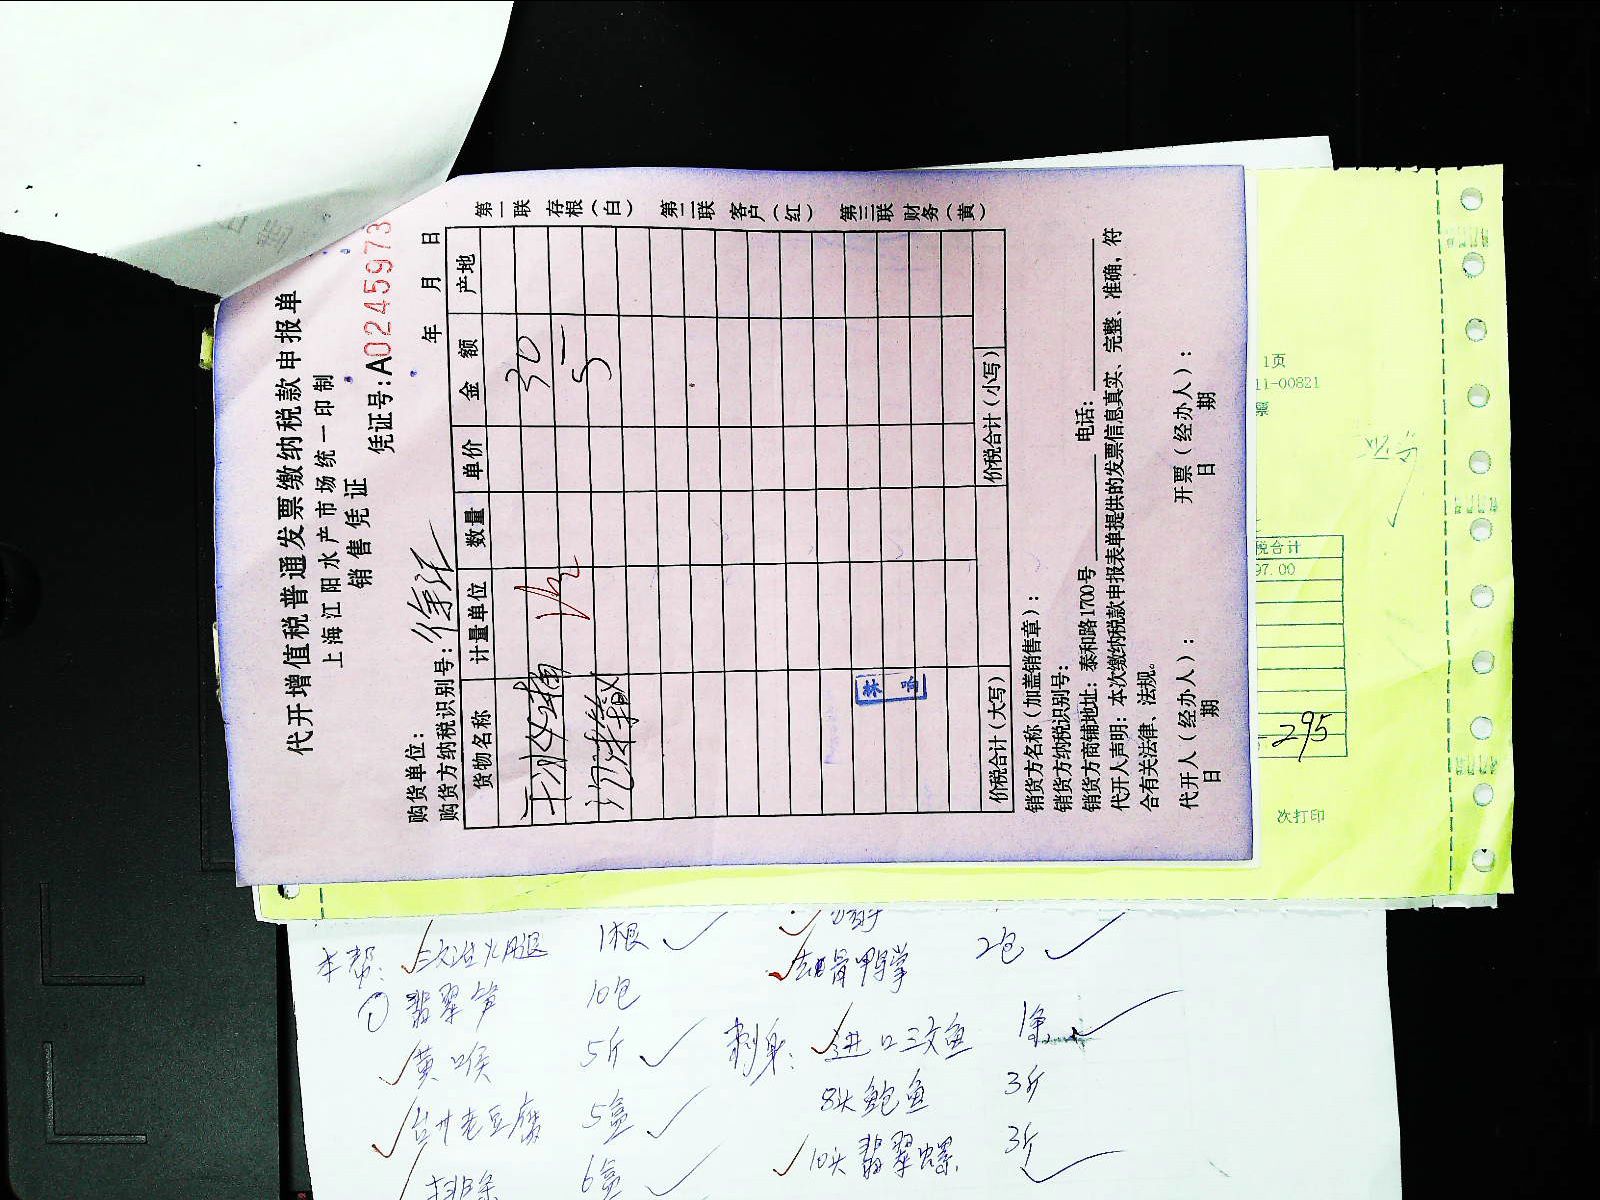 代开增值税普通发票缴纳税款申报单
上海江阳水产市场统一印制
销售凭证
凭证号:A0245973
年 月 日
购货单位：
购货方纳税识别号：
货物名称 计量单位 数量 单价 金额 产地
30
5
价税合计（大写） 价税合计（小写）
第一联 存根（白） 第二联 客户（红） 第三联 财务（黄）
销货方名称（加盖销售章）：
销货方纳税识别号：
销货方商铺地址：泰和路1700号 电话：
代开人声明：本次缴纳税款申报表单提供的发票信息真实、完整、准确，符
合有关法律、法规。
代开人（经办人）： 开票（经办人）：
日 期 日 期
1页
11-00821
票
税合计
97.00
295
次打印
本帮： 三文治火腿 1根
① 翡翠笋 10包
黄喉 5斤
老豆腐 5盒
6盒
去骨鸭掌 2包
刺身： 进口三文鱼 1条
8头鲍鱼 3斤
10头翡翠螺 3斤